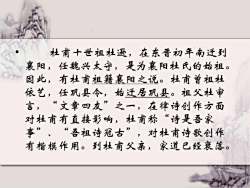 • 杜甫十世祖杜逊，在东晋初年南迁到
襄阳，任魏兴太守，是为襄阳杜氏的始祖。
因此，有杜甫祖籍襄阳之说。杜甫曾祖杜
依艺，任巩县令，始迁居巩县。祖父杜审
言，“文章四友”之一，在律诗创作方面
对杜甫有直接影响，杜甫称“诗是吾家
事”、“吾祖诗冠古”，对杜甫诗歌创作
有楷模作用。到杜甫父亲，家道已经衰落。